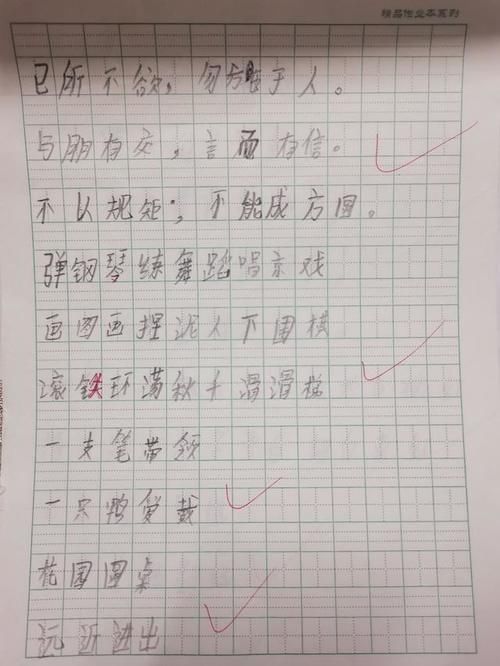 精品作业本系列
己所不欲，勿施于人。
与朋有交，言而有信。
不以规矩，不能成方圆。
弹钢琴练舞蹈唱京戏
画图画捏泥人下围棋
滚铁环荡秋千滑滑梯
一支笔带领
一只鸭黄载
花园圆桌
远近进出